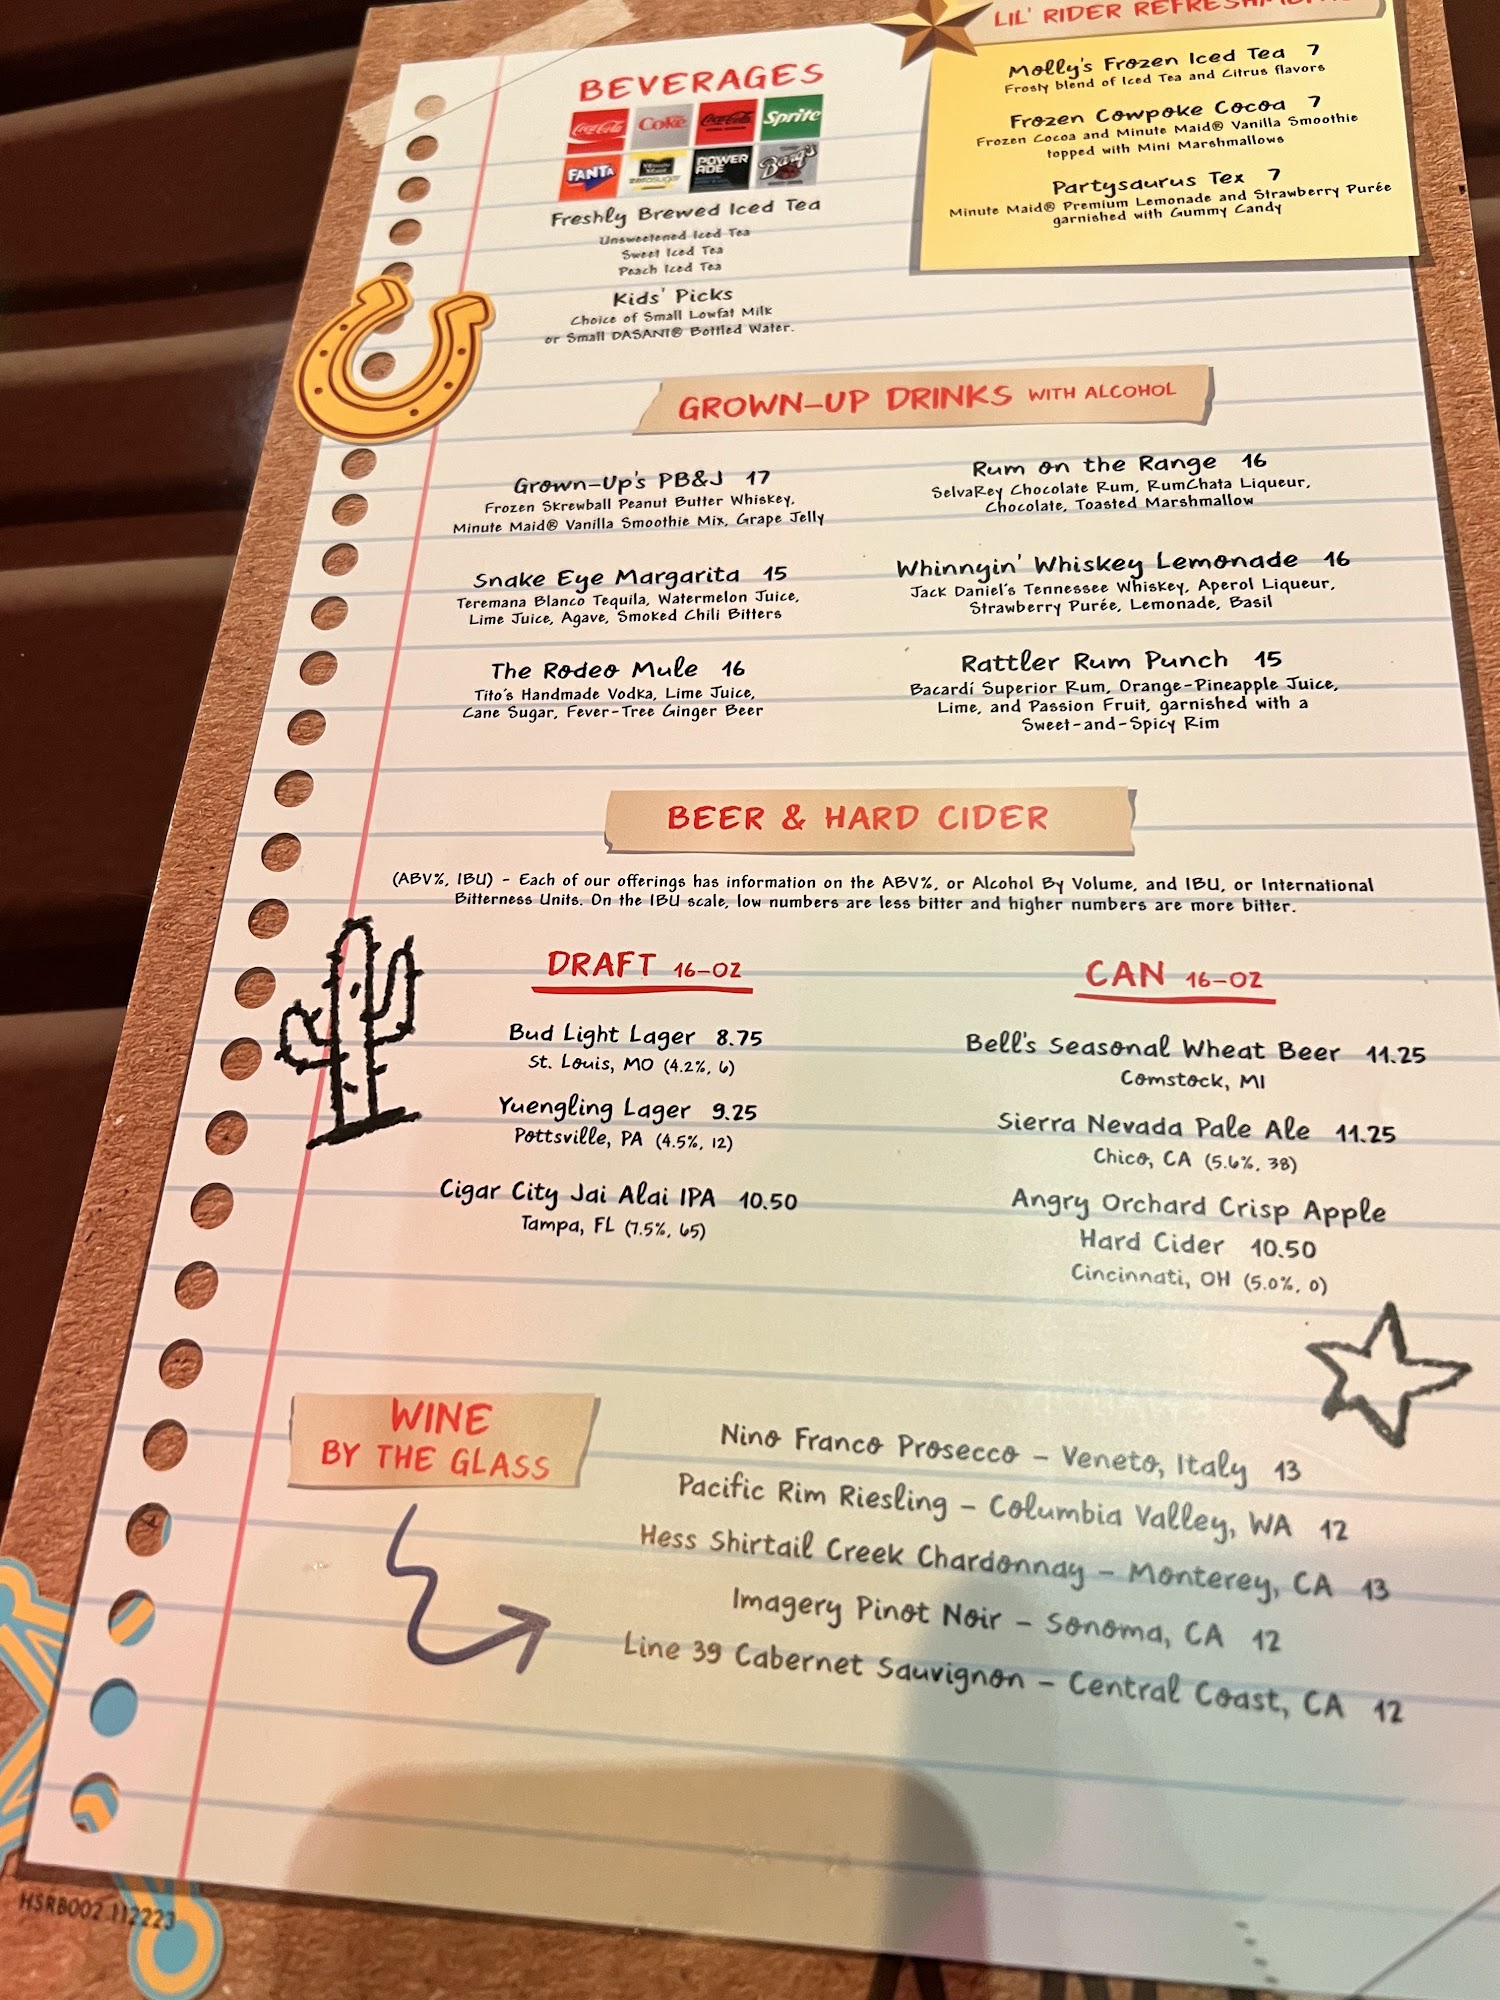 LIL' RIDER REFRESHMENTS
Molly's Frozen Iced Tea 7
Frosty blend of Iced Tea and Citrus flavors
Frozen Cowpoke Cocoa 7
Frozen Cocoa and Minute Maid® Vanilla Smoothie
topped with Mini Marshmallows
Partysaurus Tex 7
Minute Maid® Premium Lemonade and Strawberry Purée
garnished with Gummy Candy
BEVERAGES
Coca-Cola Coke Coca-Cola Sprite
FANTA Minute Maid zero sugar POWERADE Barq's
Freshly Brewed Iced Tea
Unsweetened Iced Tea
Sweet Iced Tea
Peach Iced Tea
Kids' Picks
Choice of Small Lowfat Milk
or Small DASANI® Bottled Water.
GROWN-UP DRINKS WITH ALCOHOL
Grown-Up's PB&J 17
Frozen Skrewball Peanut Butter Whiskey,
Minute Maid® Vanilla Smoothie Mix, Grape Jelly
Snake Eye Margarita 15
Teremana Blanco Tequila, Watermelon Juice,
Lime Juice, Agave, Smoked Chili Bitters
The Rodeo Mule 16
Tito's Handmade Vodka, Lime Juice,
Cane Sugar, Fever-Tree Ginger Beer
Rum on the Range 16
SelvaRey Chocolate Rum, RumChata Liqueur,
Chocolate, Toasted Marshmallow
Whinnyin' Whiskey Lemonade 16
Jack Daniel's Tennessee Whiskey, Aperol Liqueur,
Strawberry Purée, Lemonade, Basil
Rattler Rum Punch 15
Bacardí Superior Rum, Orange-Pineapple Juice,
Lime, and Passion Fruit, garnished with a
Sweet-and-Spicy Rim
BEER & HARD CIDER
(ABV%, IBU) - Each of our offerings has information on the ABV%, or Alcohol By Volume, and IBU, or International
Bitterness Units. On the IBU scale, low numbers are less bitter and higher numbers are more bitter.
DRAFT 16-OZ
Bud Light Lager 8.75
St. Louis, MO (4.2%, 6)
Yuengling Lager 9.25
Pottsville, PA (4.5%, 12)
Cigar City Jai Alai IPA 10.50
Tampa, FL (7.5%, 65)
CAN 16-OZ
Bell's Seasonal Wheat Beer 11.25
Comstock, MI
Sierra Nevada Pale Ale 11.25
Chico, CA (5.6%, 38)
Angry Orchard Crisp Apple
Hard Cider 10.50
Cincinnati, OH (5.0%, 0)
WINE
BY THE GLASS
Nino Franco Prosecco - Veneto, Italy 13
Pacific Rim Riesling - Columbia Valley, WA 12
Hess Shirtail Creek Chardonnay - Monterey, CA 13
Imagery Pinot Noir - Sonoma, CA 12
Line 39 Cabernet Sauvignon - Central Coast, CA 12
HSRB002 112223